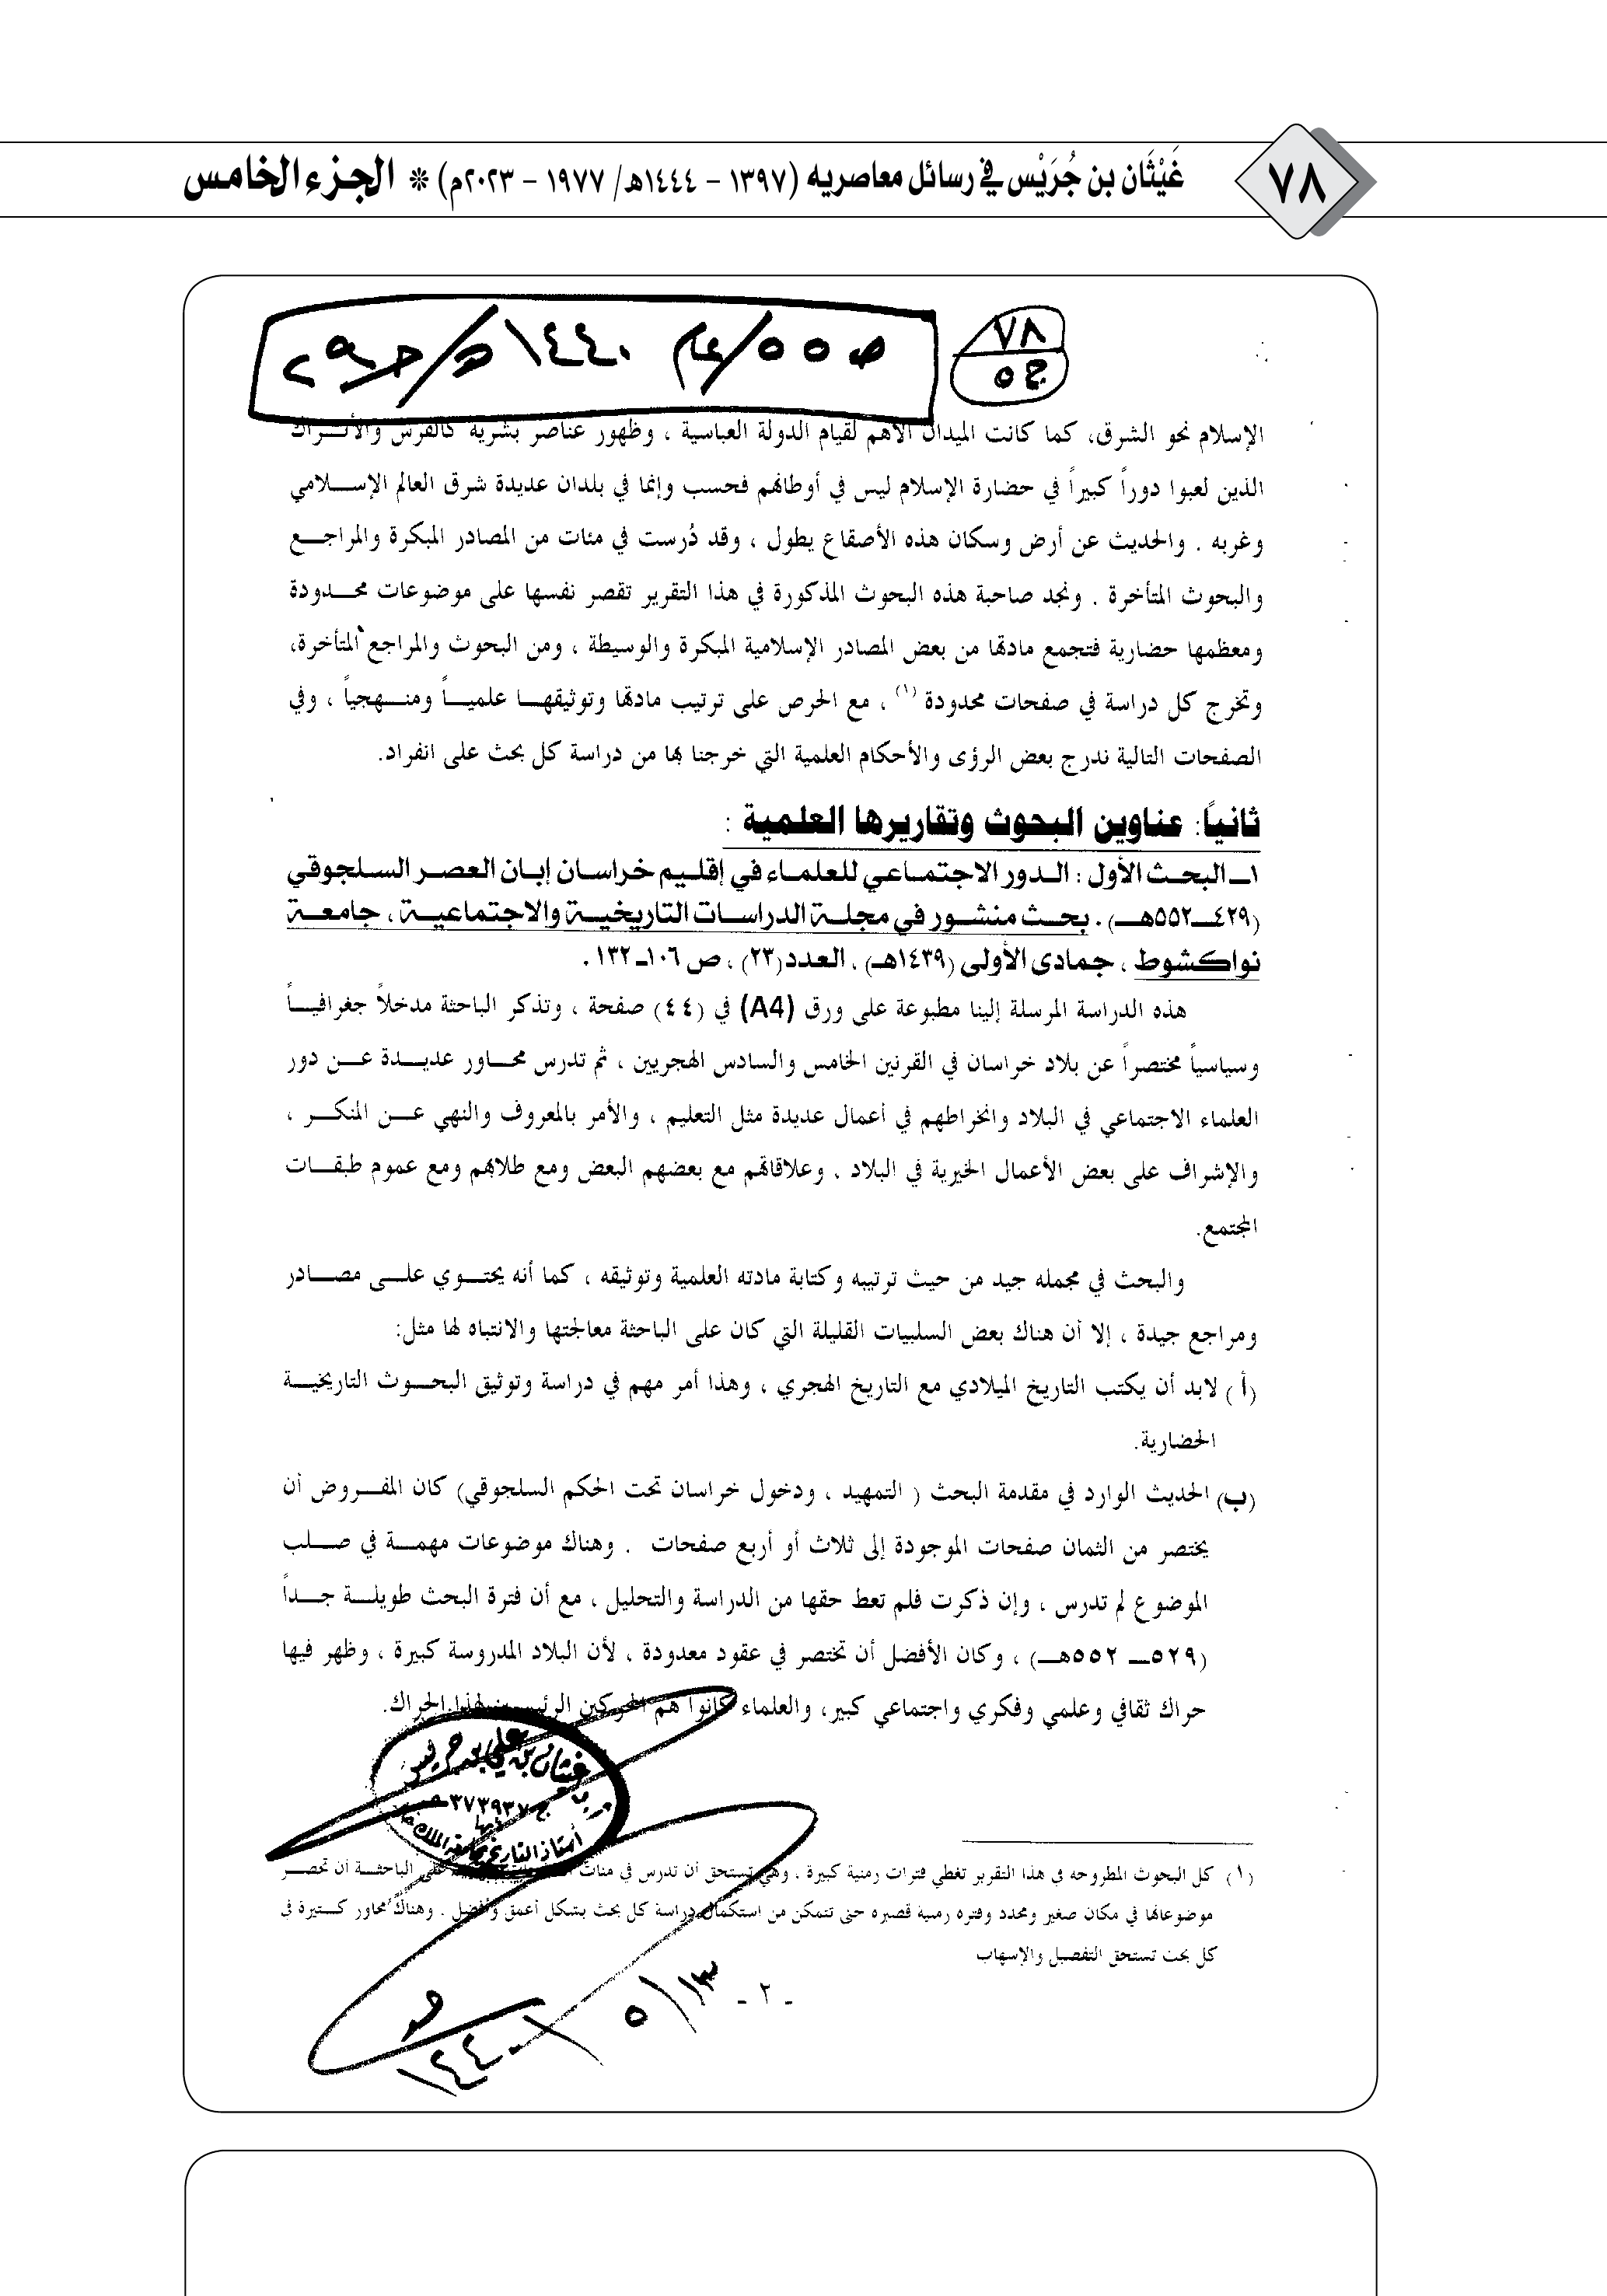 ٧٨
غَيْثَان بن جُرَيْس في رسائل معاصريه (١٣٩٧ - ١٤٤٤هـ/ ١٩٧٧ - ٢٠٢٣م) * الجزء الخامس
٧٨
ج٥
الإسلام نحو الشرق، كما كانت الميدان الأهم لقيام الدولة العباسية ، وظهور عناصر بشرية كالفرس والأتراك
الذين لعبوا دوراً كبيراً في حضارة الإسلام ليس في أوطانهم فحسب وإنما في بلدان عديدة شرق العالم الإسلامي
وغربه . والحديث عن أرض وسكان هذه الأصقاع يطول ، وقد دُرست في مئات من المصادر المبكرة والمراجع
والبحوث المتأخرة . ونجد صاحبة هذه البحوث المذكورة في هذا التقرير تقصر نفسها على موضوعات محدودة
ومعظمها حضارية فتجمع مادتها من بعض المصادر الإسلامية المبكرة والوسيطة ، ومن البحوث والمراجع المتأخرة،
وتخرج كل دراسة في صفحات محدودة (١) ، مع الحرص على ترتيب مادتها وتوثيقها علمياً ومنهجياً ، وفي
الصفحات التالية ندرج بعض الرؤى والأحكام العلمية التي خرجنا بها من دراسة كل بحث على انفراد.
ثانياً: عناوين البحوث وتقاريرها العلمية :
١ـ البحث الأول : الدور الاجتماعي للعلماء في إقليم خراسان إبان العصر السلجوقي
(٤٢٩ـ٥٥٢هـ) . بحث منشور في مجلة الدراسات التاريخية والاجتماعية ، جامعة
نواكشوط ، جمادى الأولى (١٤٣٩هـ) ، العدد (٢٣) ، ص ١٠٦ـ ١٣٢ .
هذه الدراسة المرسلة إلينا مطبوعة على ورق (A4) في (٤٤) صفحة ، وتذكر الباحثة مدخلاً جغرافياً
وسياسياً مختصراً عن بلاد خراسان في القرنين الخامس والسادس الهجريين ، ثم تدرس محاور عديدة عن دور
العلماء الاجتماعي في البلاد وانخراطهم في أعمال عديدة مثل التعليم ، والأمر بالمعروف والنهي عن المنكر ،
والإشراف على بعض الأعمال الخيرية في البلاد ، وعلاقاتهم مع بعضهم البعض ومع طلابهم ومع عموم طبقات
المجتمع.
والبحث في مجمله جيد من حيث ترتيبه وكتابة مادته العلمية وتوثيقه ، كما أنه يحتوي على مصادر
ومراجع جيدة ، إلا أن هناك بعض السلبيات القليلة التي كان على الباحثة معالجتها والانتباه لها مثل:
(أ) لابد أن يكتب التاريخ الميلادي مع التاريخ الهجري ، وهذا أمر مهم في دراسة وتوثيق البحوث التاريخية
الحضارية.
(ب) الحديث الوارد في مقدمة البحث ( التمهيد ، ودخول خراسان تحت الحكم السلجوقي) كان المفروض أن
يختصر من الثمان صفحات الموجودة إلى ثلاث أو أربع صفحات . وهناك موضوعات مهمة في صلب
الموضوع لم تدرس ، وإن ذكرت فلم تعط حقها من الدراسة والتحليل ، مع أن فترة البحث طويلة جداً
(٥٢٩ـ ٥٥٢هـ) ، وكان الأفضل أن تختصر في عقود معدودة ، لأن البلاد المدروسة كبيرة ، وظهر فيها
حراك ثقافي وعلمي وفكري واجتماعي كبير، والعلماء كانوا هم المحركين الرئيسين لهذا الحراك.
غيثان بن علي بن جريس
أستاذ التاريخ بجامعة الملك
(١) كل البحوث المطروحه في هذا التقرير تغطي فترات زمنية كبيرة ، وهي تستحق أن تدرس في مئات على الباحثة أن تحصر
موضوعاتها في مكان صغير ومحدد وفتره زمنية قصيره حتى تتمكن من استكمال دراسة كل بحث بشكل أعمق وأفضل . وهناك محاور كثيرة في
كل بحث تستحق التفصيل والإسهاب
- ٢ -